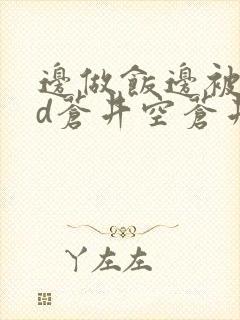 邊做飯邊被
d蒼井空蒼井
丫左左